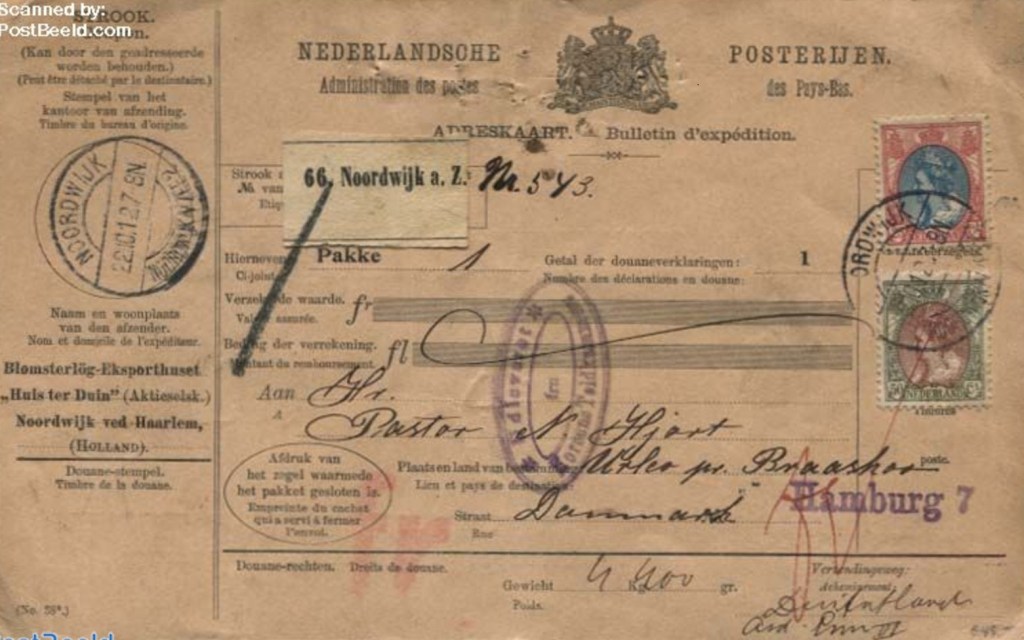 Scanned by:
PostBeeld.com
STROOK.
(Kan door den geadresseerde
worden behouden.)
(Peut être détaché par le destinataire.)
Stempel van het
kantoor van afzending.
Timbre du bureau d'origine.
NOORDWIJK
22.10.12.7-8N
Naam en woonplaats
van den afzender.
Nom et domicile de l'expéditeur.
Blomsterlög-Eksporthuset
„Huis ter Duin" (Aktieselsk.)
Noordwijk ved Haarlem,
(HOLLAND).
Douane-stempel.
Timbre de la douane.
(No. 58*.)
NEDERLANDSCHE POSTERIJEN.
Administration des postes des Pays-Bas.
ADRESKAART. Bulletin d'expédition.
Strook
No. van
66. Noordwijk a. Z. Nr. 543.
Pakke 1 Getal der douaneverklaringen: 1
Ci-joint Nombre des déclarations en douane:
waarde. fr
Bedrag der verrekening. fl
Montant du remboursement.
Aan Hr.
A
Pastor N Hjort
Afdruk van
het zegel waarmede
het pakket gesloten is.
Empreinte du cachet
qui a servi à fermer
l'envoi.
Plaats en land van
Lieu et pays de destination
poste.
Straat Danmark
Rue
Hamburg 7
Douane-rechten. Droits de douane.
Gewicht 4 Kg 400 gr.
Poids.
Verzendingsweg:
Acheminement:
NEDERLAND